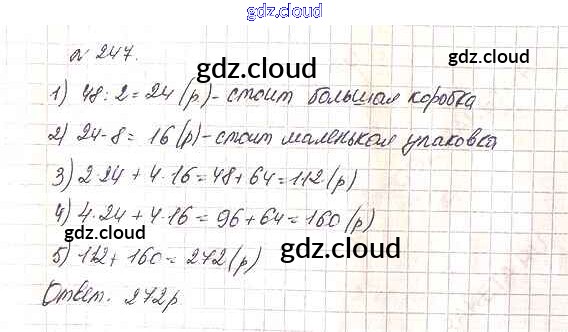 gdz.cloud
№ 247.
gdz.cloud
gdz.cloud
1) 48:2=24 (р)-стоит большая коробка
2) 24-8= 16 (р)-стоит маленькая упаковка
3) 2·24 + 4·16=48+64=112(р)
4) 4·24+4·16= 96+64=160(р)
gdz.cloud
gdz.cloud
5) 112+ 160= 272(р)
Ответ. 272р